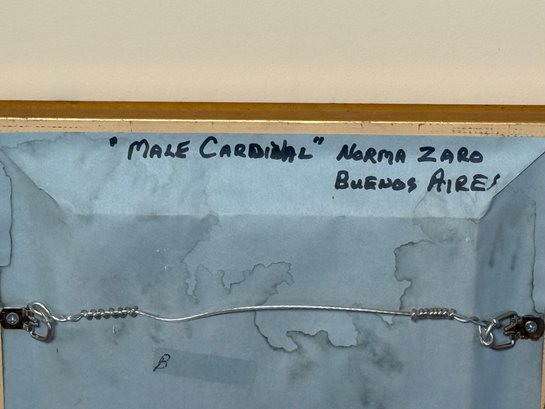 "MALE CARDINAL" NORMA ZARO
BUENOS AIRES
B